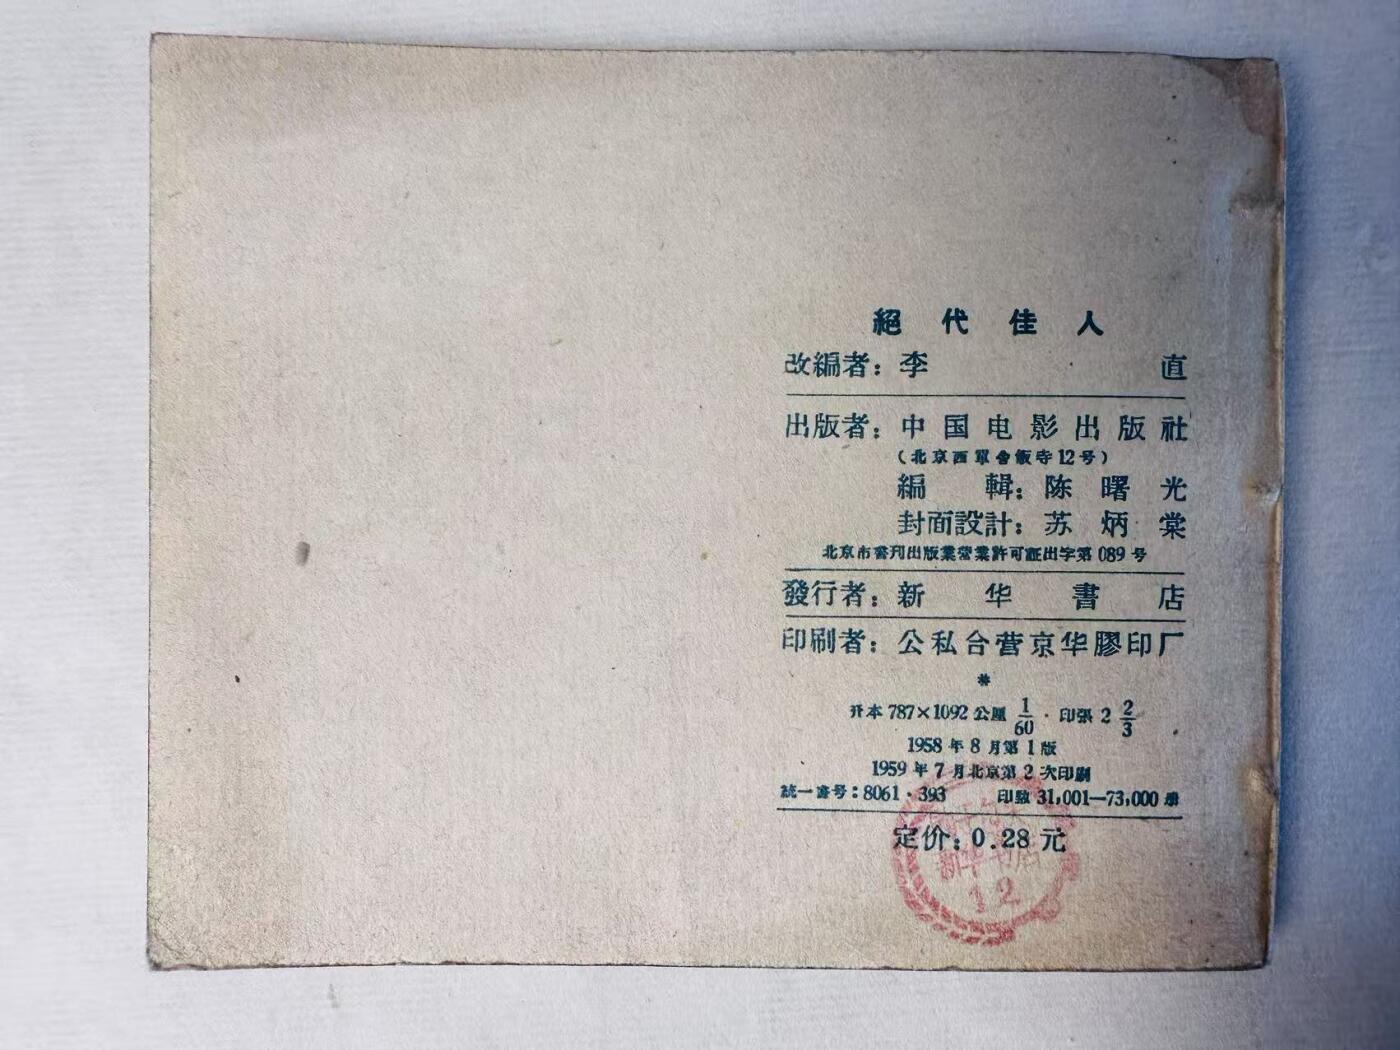 絕代佳人
改編者：李直
出版者：中国电影出版社
（北京西單舍飯寺12号）
編輯：陈曙光
封面設計：苏炳棠
北京市書刊出版業营業許可証出字第089号
發行者：新华書店
印刷者：公私合营京华膠印厂
*
开本 787×1092 公厘 1/60 · 印張 2 2/3
1958 年 8 月第 1 版
1959 年 7 月北京第 2 次印刷
統一書号：8061·393 印数 31,001—73,000 册
定价：0.28 元
新华书店
12